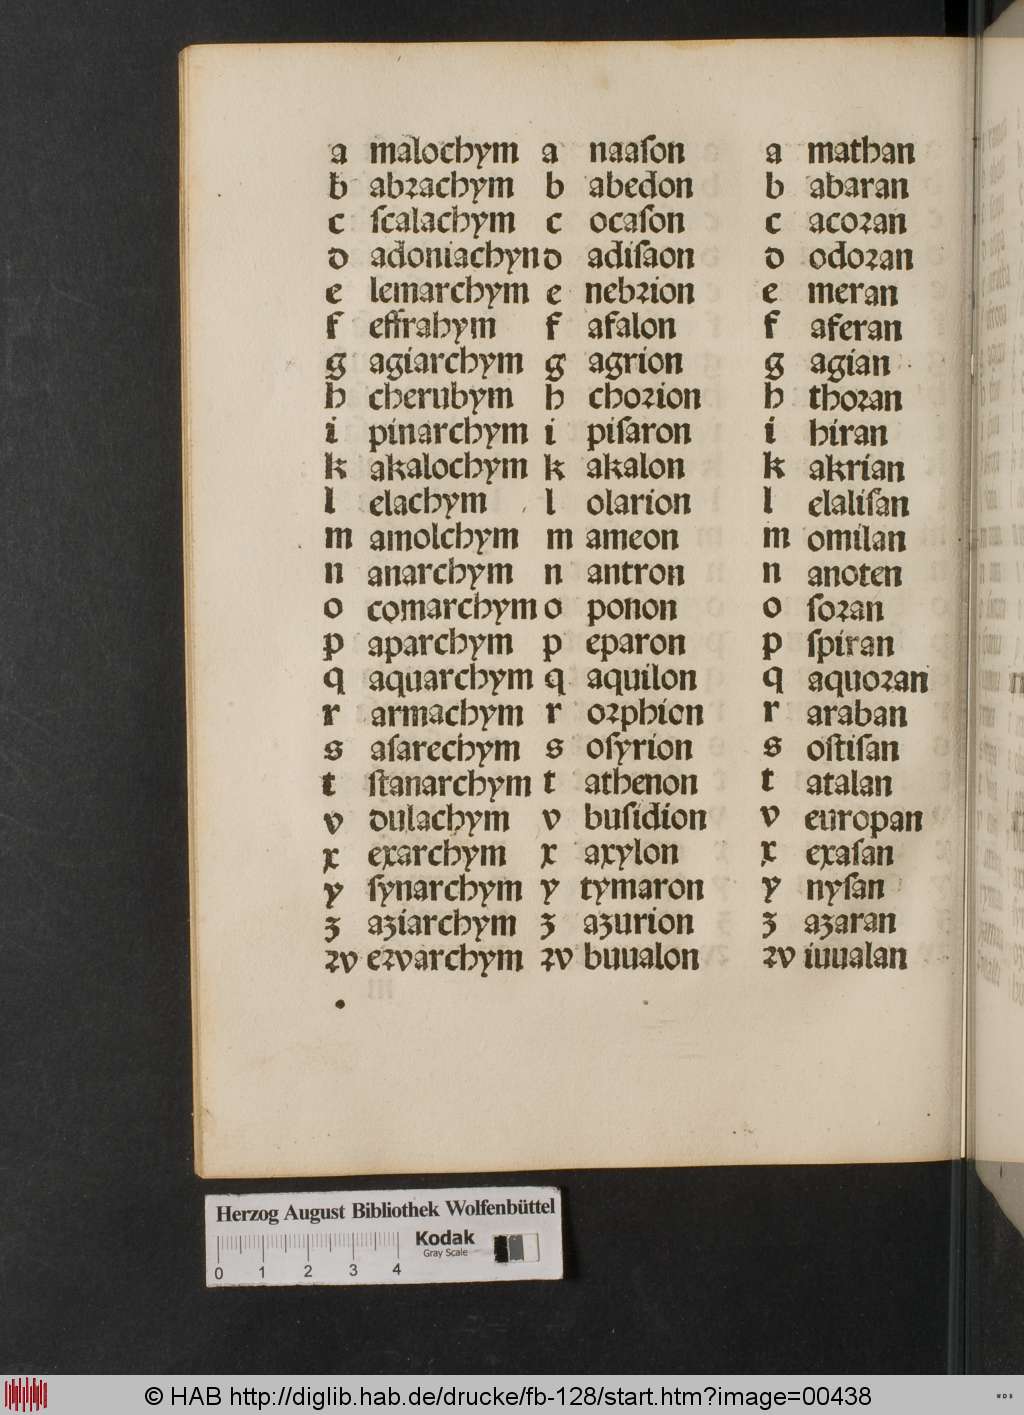 a malochym a naaſon a mathan
b abꝛachym b abedon b abaran
c ſcalachym c ocaſon c acoꝛan
d adoniachyn d adiſaon d odoꝛan
e lemarchym e nebꝛion e meran
f effrahym f afalon f aferan
g agiarchym g agrion g agian
h cherubym h choꝛion h thoꝛan
i pinarchym i piſaron i hiran
k akalochym k akalon k akrian
l elachym l olarion l elaliſan
m amolchym m ameon m omilan
n anarchym n antron n anoten
o comarchym o ponon o ſoꝛan
p aparchym p eparon p ſpiran
q aquarchym q aquilon q aquoꝛan
r armachym r oꝛphion r araban
s aſarechym s oſyrion s oſtiſan
t ſtanarchym t athenon t atalan
v dulachym v buſidion v europan
x exarchym x axylon x exaſan
y ſynarchym y tymaron y nyſan
ʒ aʒiarchym ʒ aʒurion ʒ aʒaran
ꝛv eꝛvarchym ꝛv buualon ꝛv iuualan
Herzog August Bibliothek Wolfenbüttel
Kodak
Gray Scale
0 1 2 3 4
© HAB http://diglib.hab.de/drucke/fb-128/start.htm?image=00438